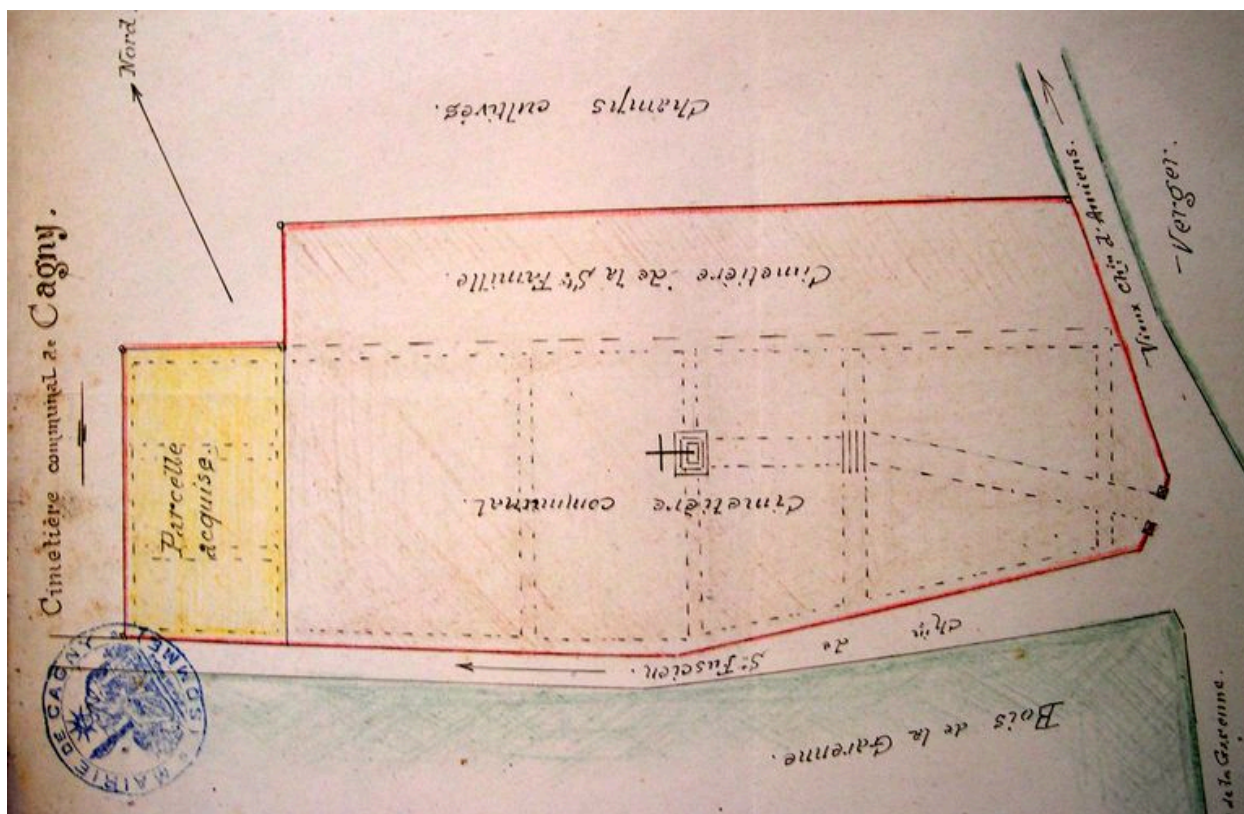 Cimetière communal de Cagny.
Nord
Champs cultivés.
Cimetière de la Ste Famille.
Vieux Chin d'Amiens.
Verger.
Parcelle
acquise.
Cimetière communal.
Chin de St Fuscien.
Bois de la Garenne.
de la Garenne.
MAIRIE DE CAGNY (SOMME)